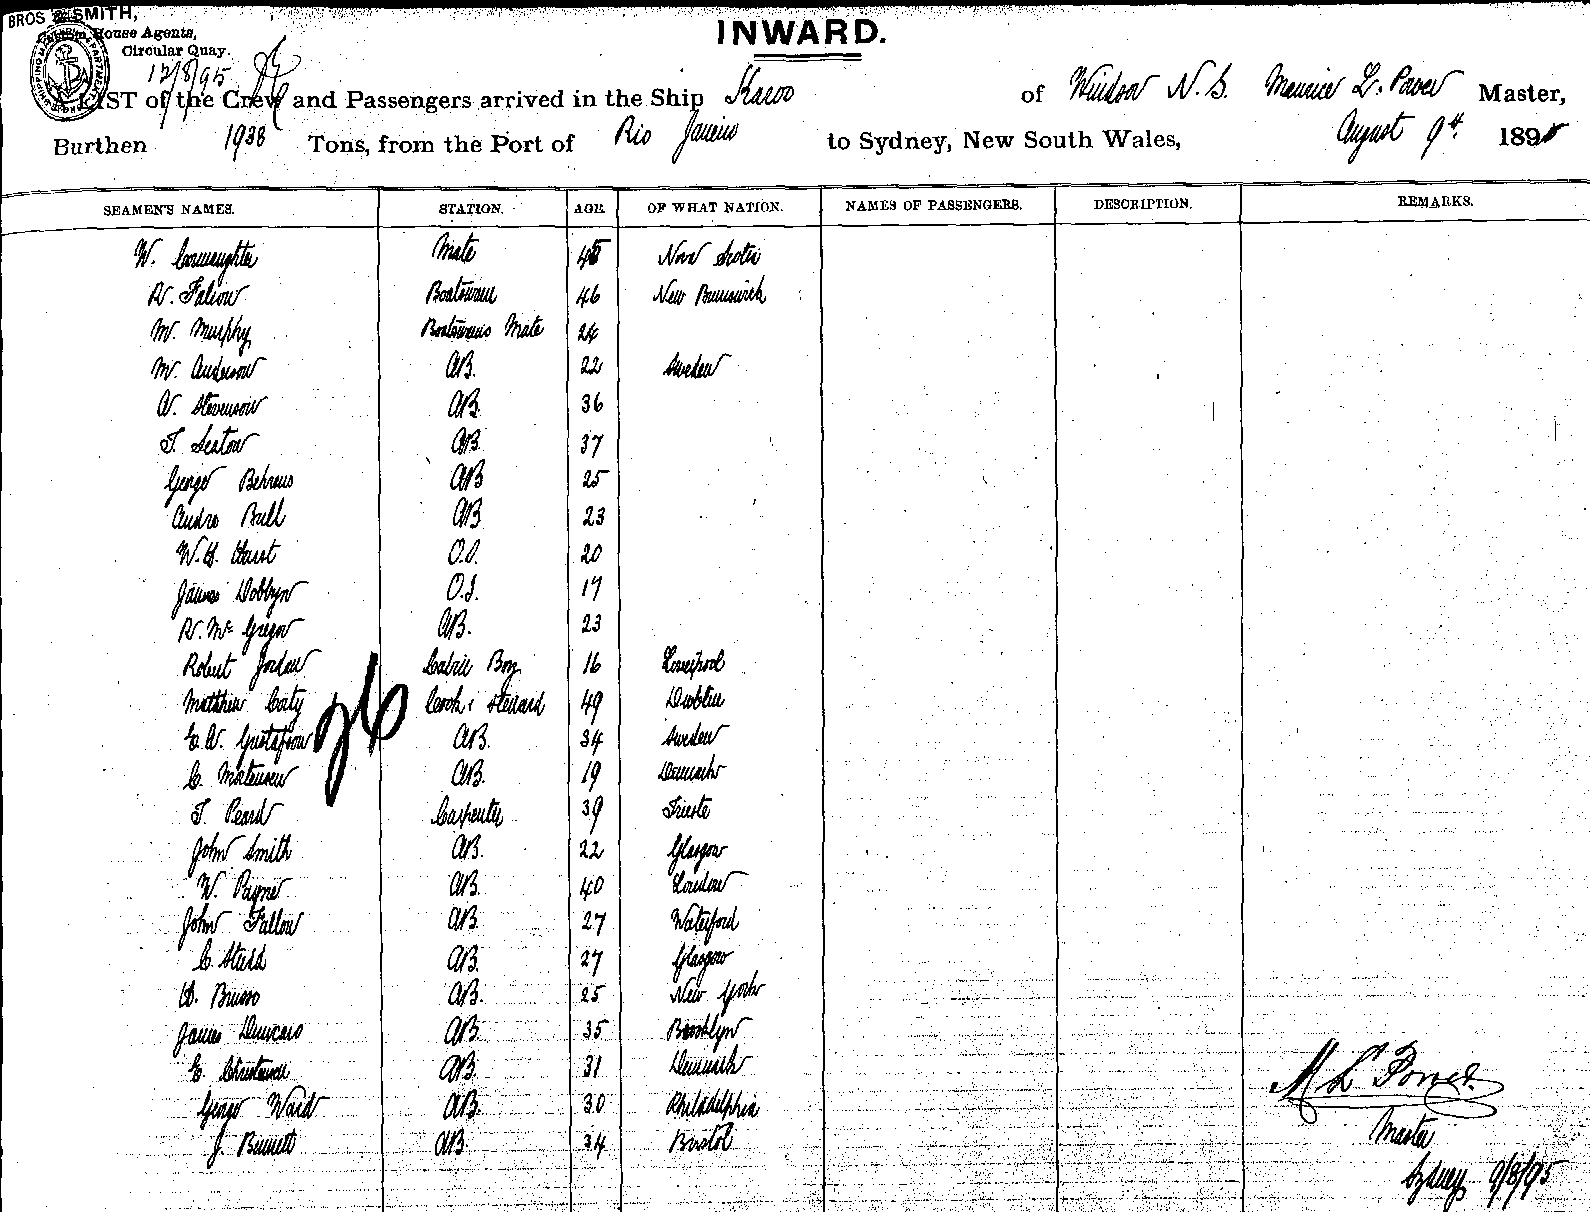 BROS & SMITH,
House Agents,
Circular Quay.
12/8/95
INWARD.
LIST of the Crew and Passengers arrived in the Ship Karoo of Windsor N.S. Maurice L. Power Master,
Burthen 1938 Tons, from the Port of Rio Janeiro to Sydney, New South Wales, August 9th 1895
SEAMEN'S NAMES. STATION. AGE. OF WHAT NATION. NAMES OF PASSENGERS. DESCRIPTION. REMARKS.
W. Mate Nova Scotia
Boatswain 46 New Brunswick
M. Murphy Boatswains Mate 24
M. Anderson AB. 22 Sweden
A. Stevenson AB. 36
T. Seaton AB 37
George Behrens AB 25
Andre Bull AB 23
W.H. Hurst O.S. 20
James Dobbyn O.S. 17
R. Mc Gregor AB. 23
Robert Jordan Cabin Boy 16 Liverpool
Matthew Cook & Steward 49 Dublin
26
E.A. Gustafson AB. 34 Sweden
C. Mortensen AB. 19 Denmark
T. Peard Carpenter 39 Trieste
John Smith AB. 22 Glasgow
W. Payne AB. 40 London
John Fallon AB. 27 Waterford
C. AB. 27 Glasgow
Brusso AB. 25 New York
James Duncan AB. 35 Brooklyn
E. AB. 31 Denmark
George Ward AB. 30 Philadelphia
J. Burnett AB 34 Bristol
M L Power
Master
Sydney 9/8/95